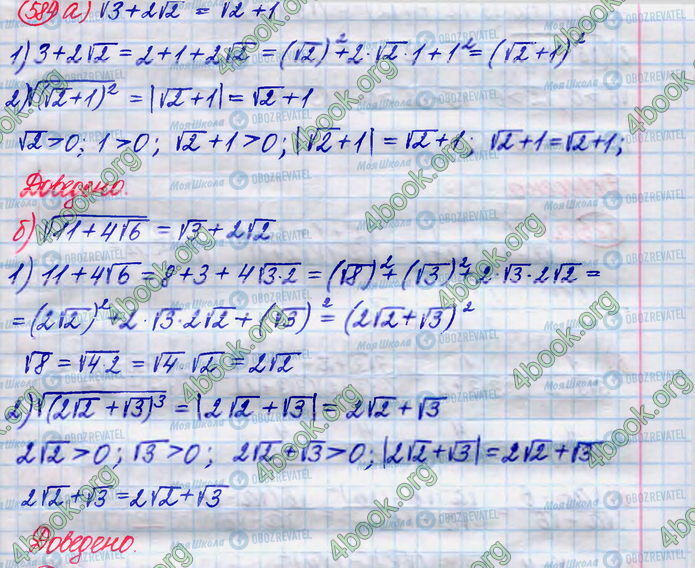 584 а) √3+2√2 = √2+1
1) 3+2√2 = 2+1+2√2 = (√2)²+2·√2·1+1² = (√2+1)²
2) √(√2+1)² = |√2+1| = √2+1
√2>0; 1>0; √2+1>0; |√2+1| = √2+1; √2+1=√2+1;
Доведено.
б) √(11+4√6) = √3+2√2
1) 11+4√6 = 8+3+4√3·2 = (√8)²+(√3)²+2·√3·2√2 =
= (2√2)²+2·√3·2√2+(√3)² = (2√2+√3)²
√8 = √4·2 = √4·√2 = 2√2
2) √(2√2+√3)³ = |2√2+√3| = 2√2+√3
2√2>0; √3>0; 2√2+√3>0; |2√2+√3|=2√2+√3
2√2+√3=2√2+√3
Доведено.